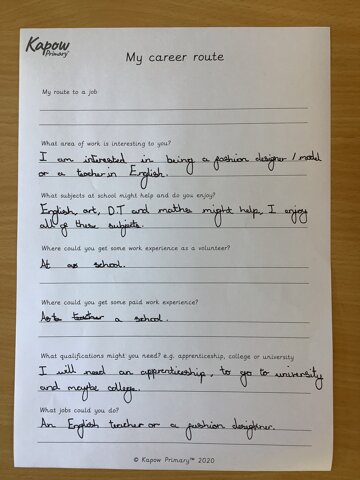 Kapow
Primary
My career route
My route to a job
What area of work is interesting to you?
I am interested in being a fashion designer / model
or a teacher in English.
What subjects at school might help and do you enjoy?
English, art, D.T and maths might help, I enjoy
all of these subjects.
Where could you get some work experience as a volunteer?
At a school.
Where could you get some paid work experience?
a school.
What qualifications might you need? e.g. apprenticeship, college or university
I will need an apprenticeship, to go to university
and maybe college.
What jobs could you do?
An English teacher or a fashion designer.
© Kapow Primary™ 2020